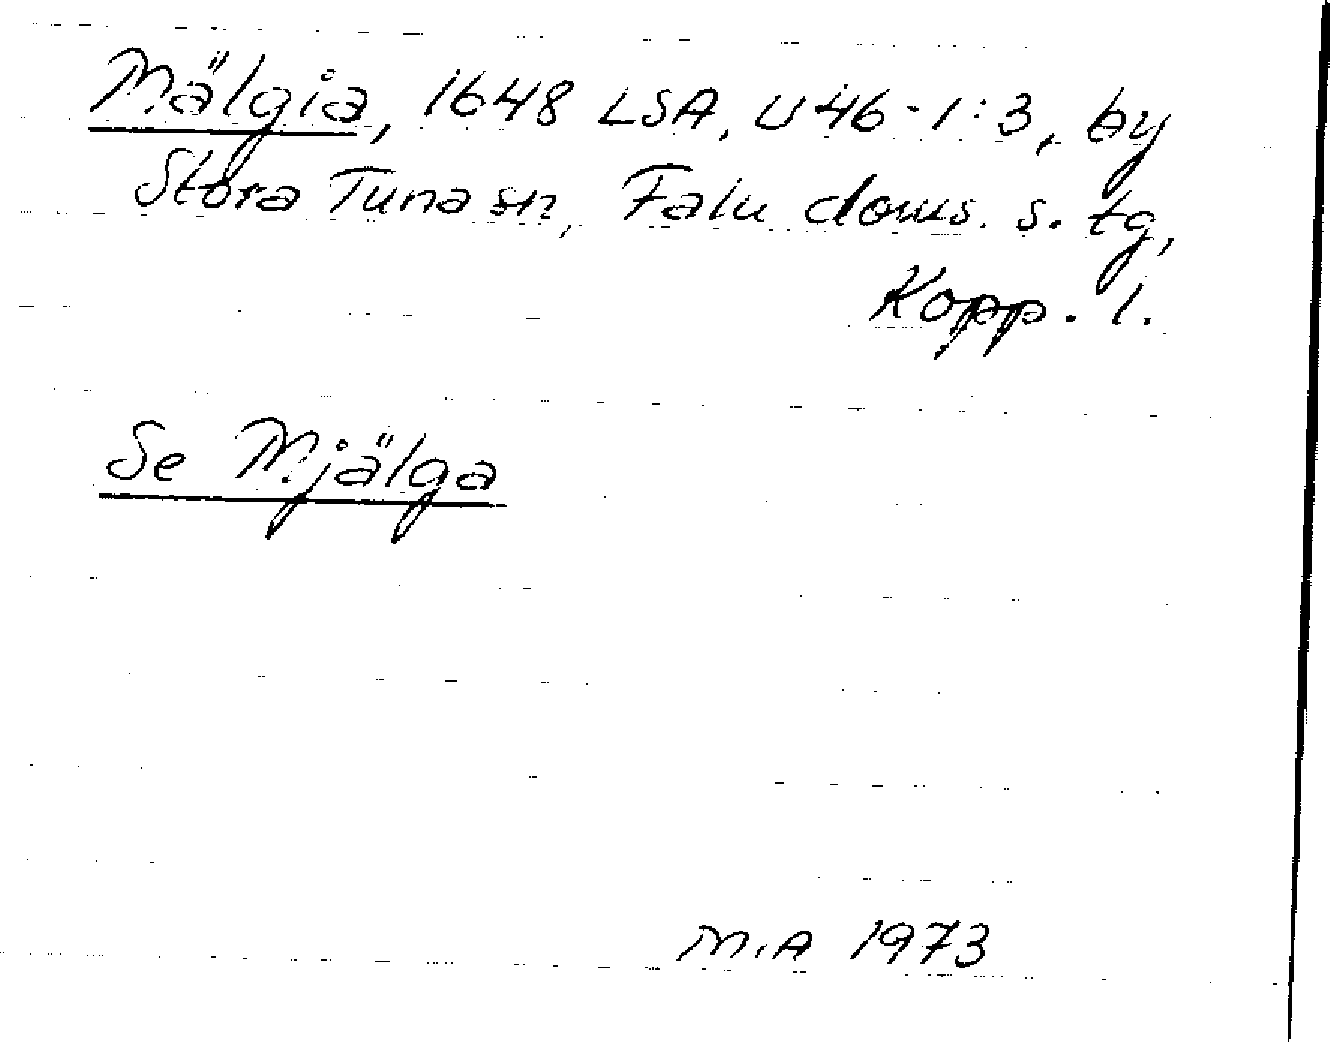 Mälgia, 1648 LSA, U46-1:3, by
Stora Tuna sn, Falu doms. s. tg,
Kopp. l.
Se Mjälga
M.A 1973